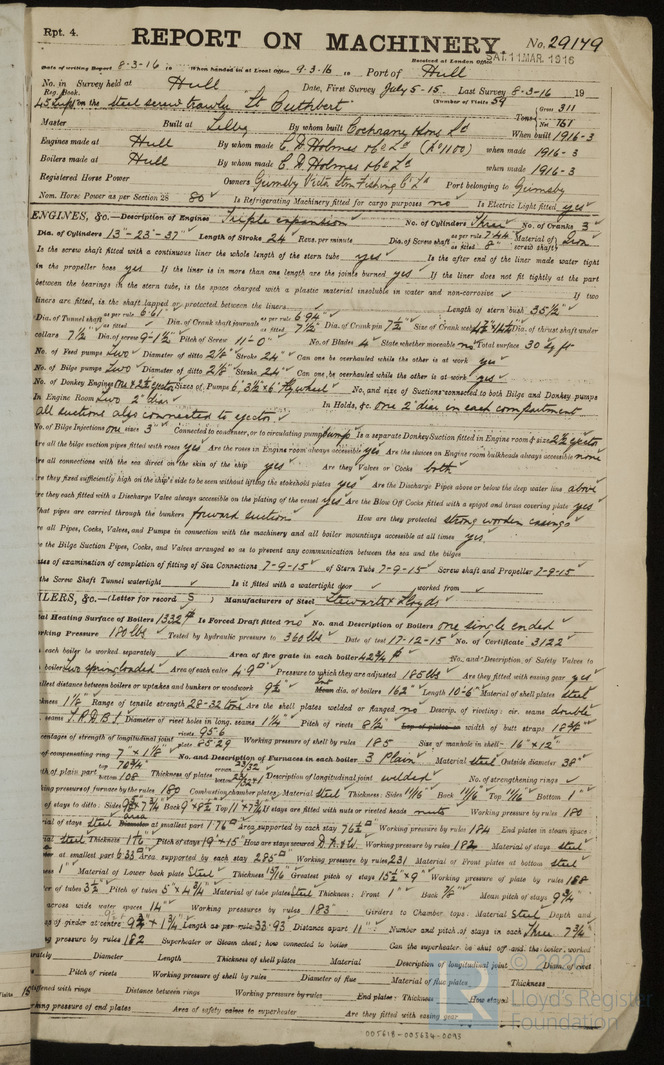 Rpt. 4.
REPORT ON MACHINERY. No. 29179
Received at London Office SAT. 11 MAR. 1916
Date of writing Report 8-3-16 19 When handed in at Local Office 9.3.16 19 Port of Hull
No. in Survey held at Hull Date, First Survey July 5-15 Last Survey 8-3-16 19
Reg. Book. (Number of Visits 59
45 Sup on the steel screw trawler St Cuthbert Tons Gross 311
Net
Master Built at Selby By whom built Cochrane & Sons Ld When built 1916-3
Engines made at Hull By whom made C. D. Holmes & Co Ld (No 1100) when made 1916-3
Boilers made at Hull By whom made C. D. Holmes & Co Ld when made 1916-3
Registered Horse Power Owners Grimsby Victor Stm Fishing Co Ld Port belonging to Grimsby
Nom. Horse Power as per Section 28 80 Is Refrigerating Machinery fitted for cargo purposes no Is Electric Light fitted yes
ENGINES, &c.—Description of Engines Triple expansion No. of Cylinders Three No. of Cranks 3
Dia. of Cylinders 13"-23"-37" Length of Stroke 24 Revs. per minute Dia. of Screw shaft as per rule 7.44 as fitted 8" Material of screw shaft Iron
Is the screw shaft fitted with a continuous liner the whole length of the stern tube yes Is the after end of the liner made water tight
in the propeller boss yes If the liner is in more than one length are the joints burned yes If the liner does not fit tightly at the part
between the bearings in the stern tube, is the space charged with a plastic material insoluble in water and non-corrosive If two
liners are fitted, is the shaft lapped or protected between the liners Length of stern bush 35½"
Dia. of Tunnel shaft as per rule 6.61 as fitted Dia. of Crank shaft journals as per rule 6.94 as fitted 7½" Dia. of Crank pin 7½" Size of Crank webs Dia. of thrust shaft under
collars 7½" Dia. of screw 9-1½" Pitch of Screw 11-0" No. of Blades 4 State whether moveable no Total surface 30 sq ft
No. of Feed pumps two Diameter of ditto 2½" Stroke 24 Can one be overhauled while the other is at work yes
No. of Bilge pumps two Diameter of ditto 2½" Stroke 24 Can one be overhauled while the other is at work yes
No. of Donkey Engines one & 2½" ejector Sizes of Pumps 6, 3½" x 6" Flywheel No. and size of Suctions connected to both Bilge and Donkey pumps
In Engine Room Two 2" dia In Holds, &c. one 2" dia in each compartment
all suctions also connected to ejector
No. of Bilge Injections one sizes 3" Connected to condenser, or to circulating pump pump Is a separate Donkey Suction fitted in Engine room & size 2½ ejector
Are all the bilge suction pipes fitted with roses yes Are the roses in Engine room always accessible yes Are the sluices on Engine room bulkheads always accessible none
Are all connections with the sea direct on the skin of the ship yes Are they Valves or Cocks both
Are they fixed sufficiently high on the ship's side to be seen without lifting the stokehold plates yes Are the Discharge Pipes above or below the deep water line above
Are they each fitted with a Discharge Valve always accessible on the plating of the vessel yes Are the Blow Off Cocks fitted with a spigot and brass covering plate yes
What pipes are carried through the bunkers forward suction How are they protected strong wooden casings
are all Pipes, Cocks, Valves, and Pumps in connection with the machinery and all boiler mountings accessible at all times yes
re the Bilge Suction Pipes, Cocks, and Valves arranged so as to prevent any communication between the sea and the bilges
ates of examination of completion of fitting of Sea Connections 7-9-15 of Stern Tube 7-9-15 Screw shaft and Propeller 7-9-15
the Screw Shaft Tunnel watertight Is it fitted with a watertight door worked from
ILERS, &c.—(Letter for record S) Manufacturers of Steel Stewarts & Lloyds
tal Heating Surface of Boilers 1332 Is Forced Draft fitted no No. and Description of Boilers one single ended
orking Pressure 180 lbs Tested by hydraulic pressure to 360 lbs Date of test 17-12-15 No. of Certificate 3122
each boiler be worked separately Area of fire grate in each boiler 42¾ No. and Description of Safety Valves to
boiler two spring loaded Area of each valve 4.9 Pressure to which they are adjusted 185 lbs Are they fitted with easing gear yes
allest distance between boilers or uptakes and bunkers or woodwork 9½" dia. of boilers 162" Length 10-6" Material of shell plates steel
ckness 1⅛" Range of tensile strength 28-32 tons Are the shell plates welded or flanged no Descrip. of riveting: cir. seams double
seams T.R.D.B.S. Diameter of rivet holes in long. seams 1¼" Pitch of rivets 8½" width of butt straps
centages of strength of longitudinal joint rivets 95.6 plate 85.29 Working pressure of shell by rules 185 Size of manhole in shell 16" x 12"
of compensating ring 7" x 1⅛" No. and Description of Furnaces in each boiler 3 Plain Material steel Outside diameter 38"
th of plain part top bottom 108 Thickness of plates crown bottom Description of longitudinal joint welded No. of strengthening rings
king pressure of furnace by the rules 180 Combustion chamber plates: Material steel Thickness: Sides 11/16 Back 11/16 Top 11/16 Bottom 1"
of stays to ditto: Sides Back 9" x 8½ Top 11" x 7¾ If stays are fitted with nuts or riveted heads nuts Working pressure by rules 180
rial of stays steel area at smallest part 1.76 Area supported by each stay 76½ Working pressure by rules 184 End plates in steam space:
rial steel Thickness Pitch of stays 19" x 15 How are stays secured D.N. & W. Working pressure by rules 182 Material of stays steel
er at smallest part 6.33 Area supported by each stay 285 Working pressure by rules 231 Material of Front plates at bottom steel
kness 1" Material of Lower back plate Steel Thickness 15/16 Greatest pitch of stays 15½" x 9" Working pressure of plate by rules 188
er of tubes 3½" Pitch of tubes 5" x 4¾" Material of tube plates Steel Thickness: Front 1" Back ⅞" Mean pitch of stays 9¾
across wide water spaces 14" Working pressures by rules 183 Girders to Chamber tops: Material Steel Depth and
s of girder at centre 9¾ x 1¾ Length as per rule 33.93 Distance apart 11" Number and pitch of stays in each Three 7¾"
g pressure by rules 182 Superheater or Steam chest; how connected to boiler Can the superheater be shut off and the boiler worked
rately Diameter Length Thickness of shell plates Material Description of longitudinal joint Diam. of rivet
Pitch of rivets Working pressure of shell by rules Diameter of flue Material of flue plates Thickness
stiffened with rings Distance between rings Working pressure by rules End plates: Thickness How stayed
rking pressure of end plates Area of safety valves to superheater Are they fitted with easing gear
© 2020
Lloyd's Register
Foundation
005618-005634-0093